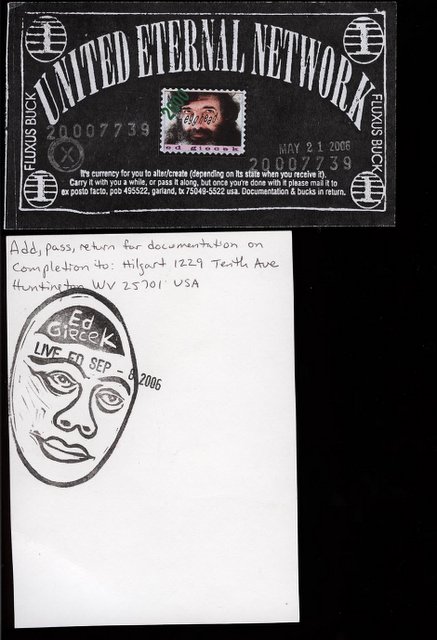 1
UNITED ETERNAL NETWORK
1
FLUXUS BUCK
FLUXUS BUCK
2000
egghead
ed giecek
20007739
X
MAY 21 2006
20007739
1
1
It's currency for you to alter/create (depending on its state when you receive it).
Carry it with you a while, or pass it along, but once you're done with it please mail it to
ex posto facto, pob 495522, garland, tx 75049-5522 usa. Documentation & bucks in return.
Add, pass, return for documentation on
Completion to: Hilgart 1229 Tenth Ave
Huntington WV 25701 USA
Ed
Giecek
LIVE ED SEP - 8 2006